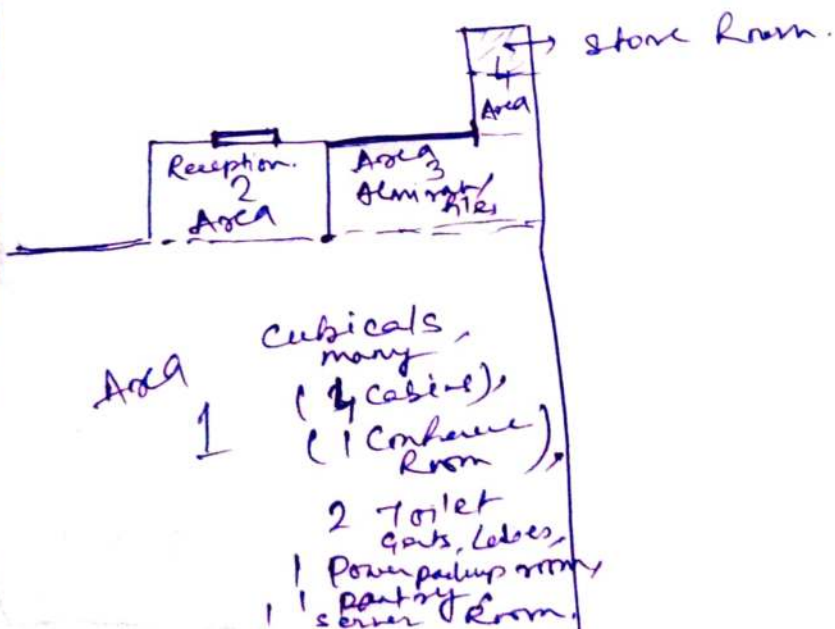 store Room.
4
Area
Reception.
2
Area
Area
3
Almirah/
files
Area
1
Cubicals,
many
(4 Cabins),
(1 Conference
Room),
2 Toilet
Gents, Ladies,
1 Power backup room,
1 pantry
1 server Room.